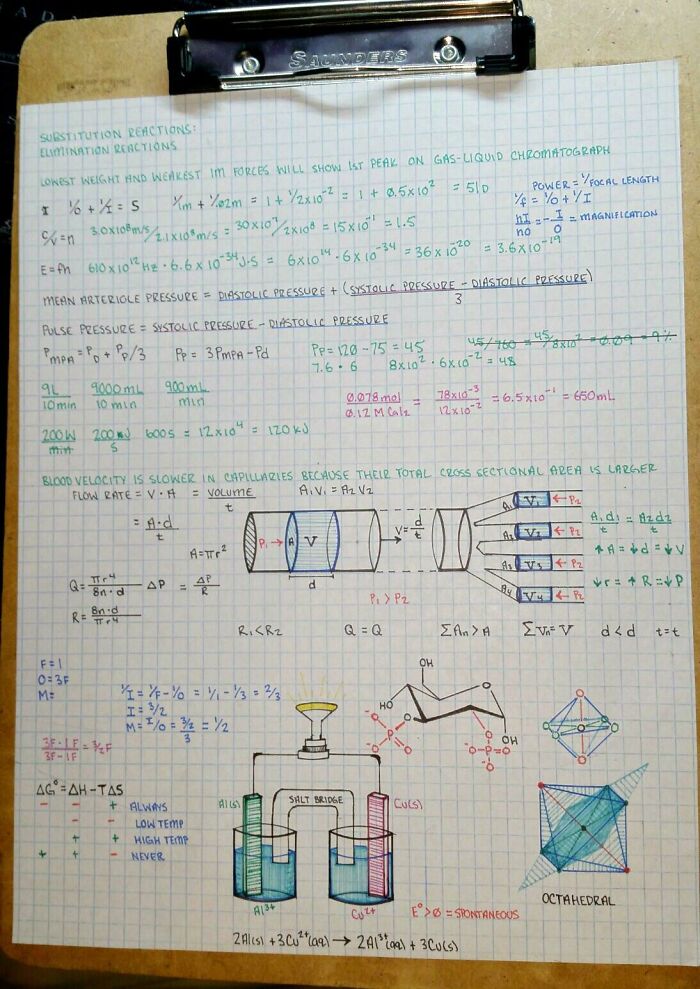 SAUNDERS
SUBSTITUTION REACTIONS:
ELIMINATION REACTIONS
LOWEST WEIGHT AND WEAKEST IM FORCES WILL SHOW 1ST PEAK ON GAS-LIQUID CHROMATOGRAPH
I 1/O + 1/I = S 1/1m + 1/.02m = 1 + 1/2x10⁻² = 1 + 0.5x10² = 51D
POWER = 1/FOCAL LENGTH
1/f = 1/O + 1/I
hI/hO = -I/O = MAGNIFICATION
C/V = n 3.0x10⁸m/s/2.1x10⁸m/s = 30x10⁷/2x10⁸ = 15x10⁻¹ = 1.5
E = fh 610x10¹²Hz · 6.6x10⁻³⁴J·S = 6x10¹⁴ · 6x10⁻³⁴ = 36x10⁻²⁰ = 3.6x10⁻¹⁹
MEAN ARTERIOLE PRESSURE = DIASTOLIC PRESSURE + (SYSTOLIC PRESSURE - DIASTOLIC PRESSURE)/3
PULSE PRESSURE = SYSTOLIC PRESSURE - DIASTOLIC PRESSURE
PMPA = PD + PP/3 PP = 3PMPA - Pd PP = 120 - 75 = 45 45/760 = 45/8x10² = 0.09 = 9%
7.6 · 6 8x10² · 6x10⁻² = 48
9L/10min 9000mL/10min 900mL/min
0.078mol/0.12M CaI2 = 78x10⁻³/12x10⁻² = 6.5x10⁻¹ = 650mL
200W/min 200J/S 600s = 12x10⁴ = 120kJ
BLOOD VELOCITY IS SLOWER IN CAPILLARIES BECAUSE THEIR TOTAL CROSS SECTIONAL AREA IS LARGER
FLOW RATE = V · A = VOLUME/t A1V1 = A2V2
= A·d/t
A = πr²
P1 → A V d
V = d/t
A1 V1 ← P2
A2 V2 ← P2
A3 V3 ← P2
A4 V4 ← P2
A1d1/t = A2d2/t
↑A = ↓d = ↓V
↓r = ↑R = ↓P
Q = πr⁴/8n·d ΔP = ΔP/R
P1 > P2
R = 8n·d/πr⁴
R1 < R2 Q = Q ΣAn > A ΣVn = V d < d t = t
F = 1
O = 3F
M =
1/I = 1/F - 1/O = 1/1 - 1/3 = 2/3
I = 3/2
M = I/O = 3/2/3 = 1/2
3F·1F/3F-1F = 3/2F
OH
HO
O
OH
O P O O⁻ O⁻
O P O⁻ O O⁻
ΔG° = ΔH - TΔS
- - + ALWAYS
- - LOW TEMP
+ + HIGH TEMP
+ + - NEVER
Al(s) SALT BRIDGE Cu(s)
Al³⁺
Cu²⁺
E° > 0 = SPONTANEOUS
OCTAHEDRAL
2Al(s) + 3Cu²⁺(aq) → 2Al³⁺(aq) + 3Cu(s)